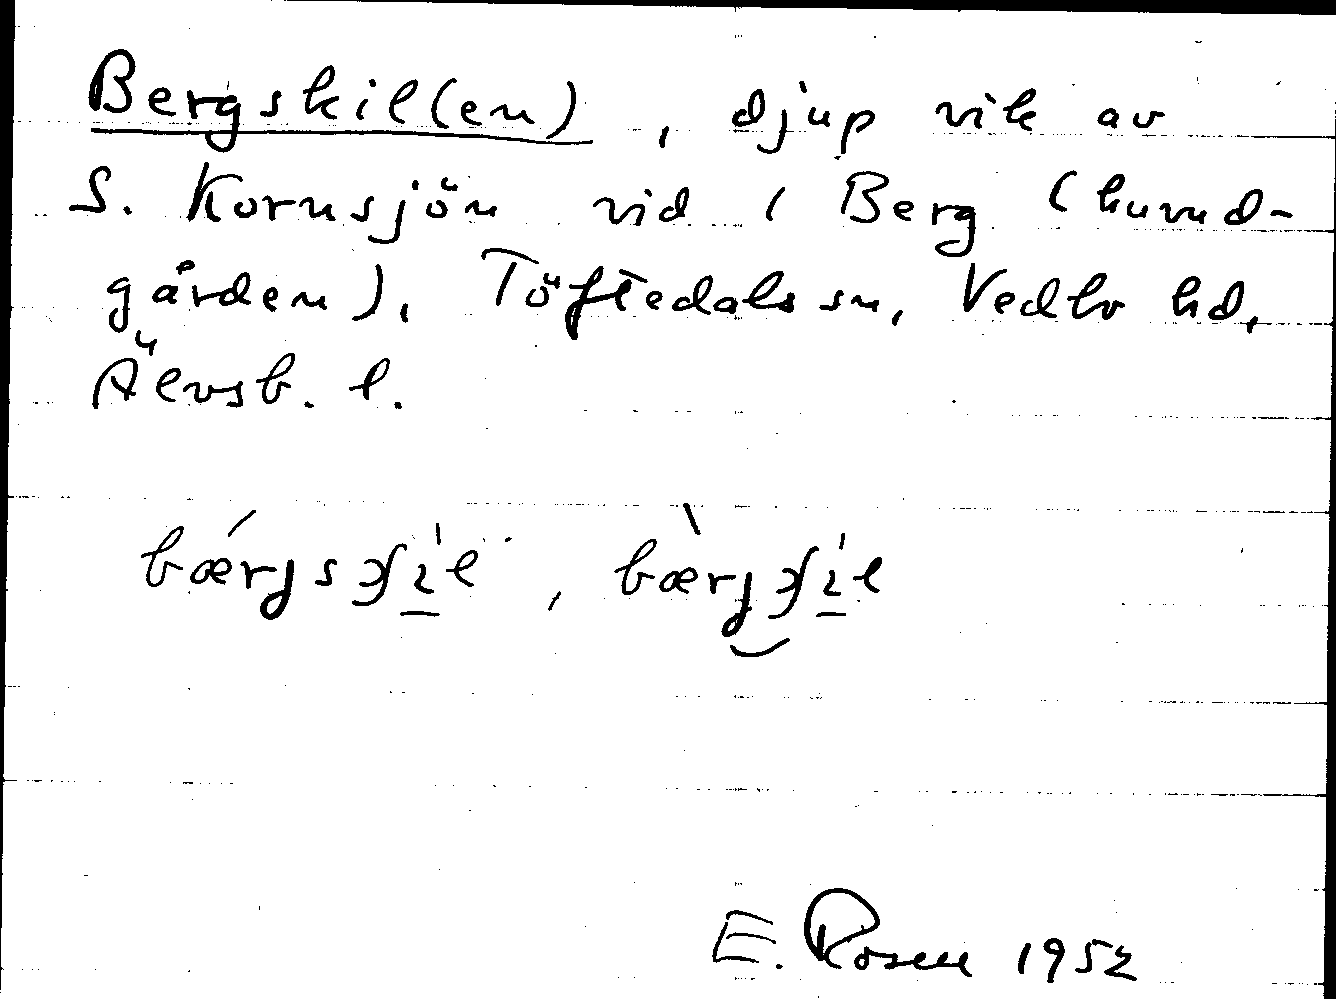 Bergskil(en), djup vik av
S. Kornsjön vid 1 Berg (huvud-
gården), Töftedals sn, Vedbo hd,
Älvsb. l.
E. Rosen 1952